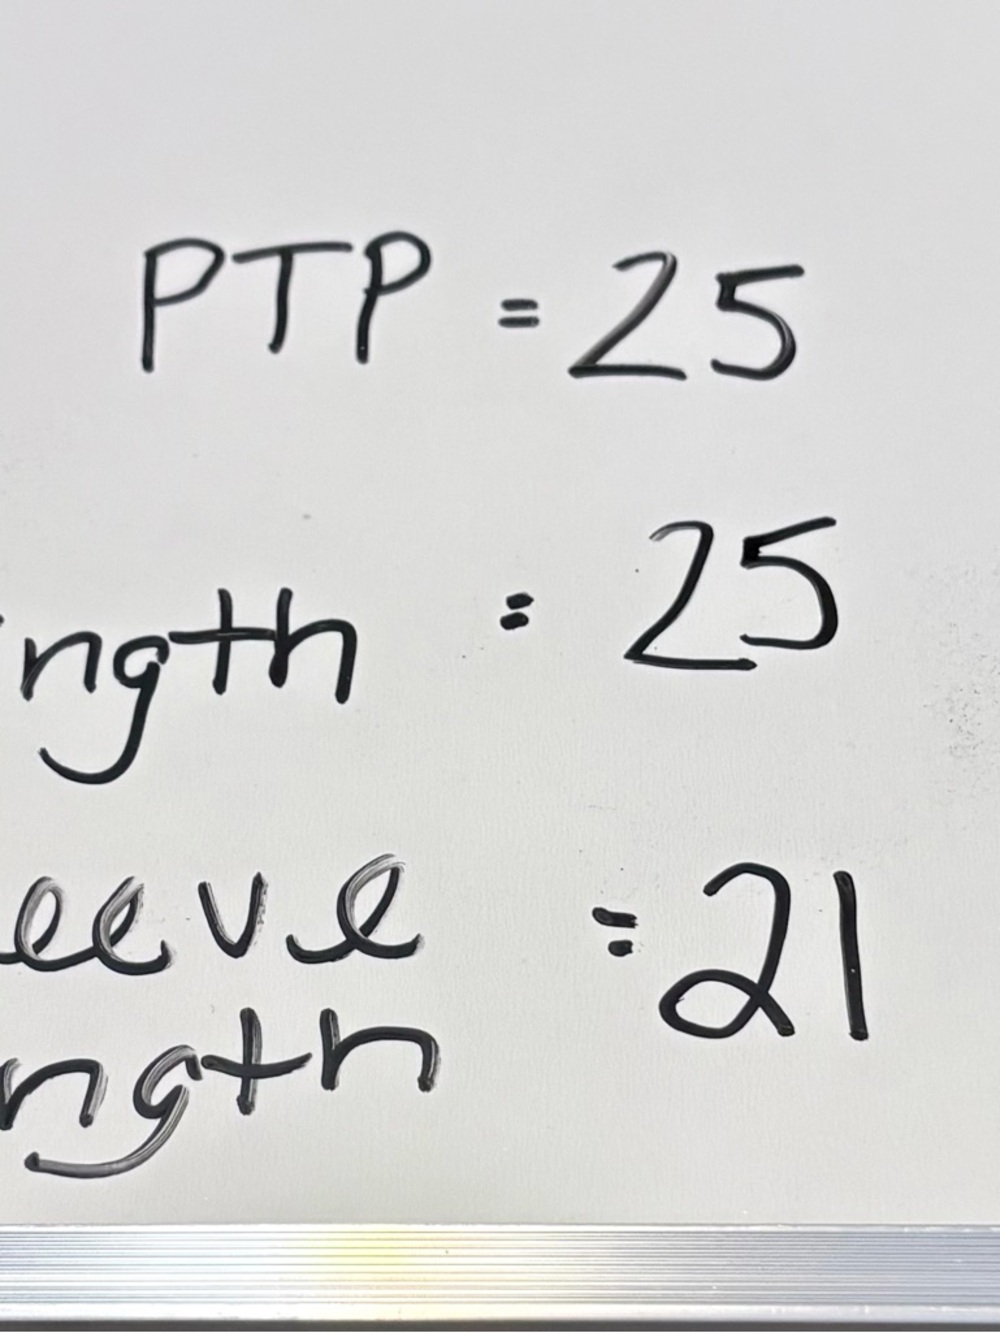 PTP = 25
ngth = 25
eeve = 21
ngth